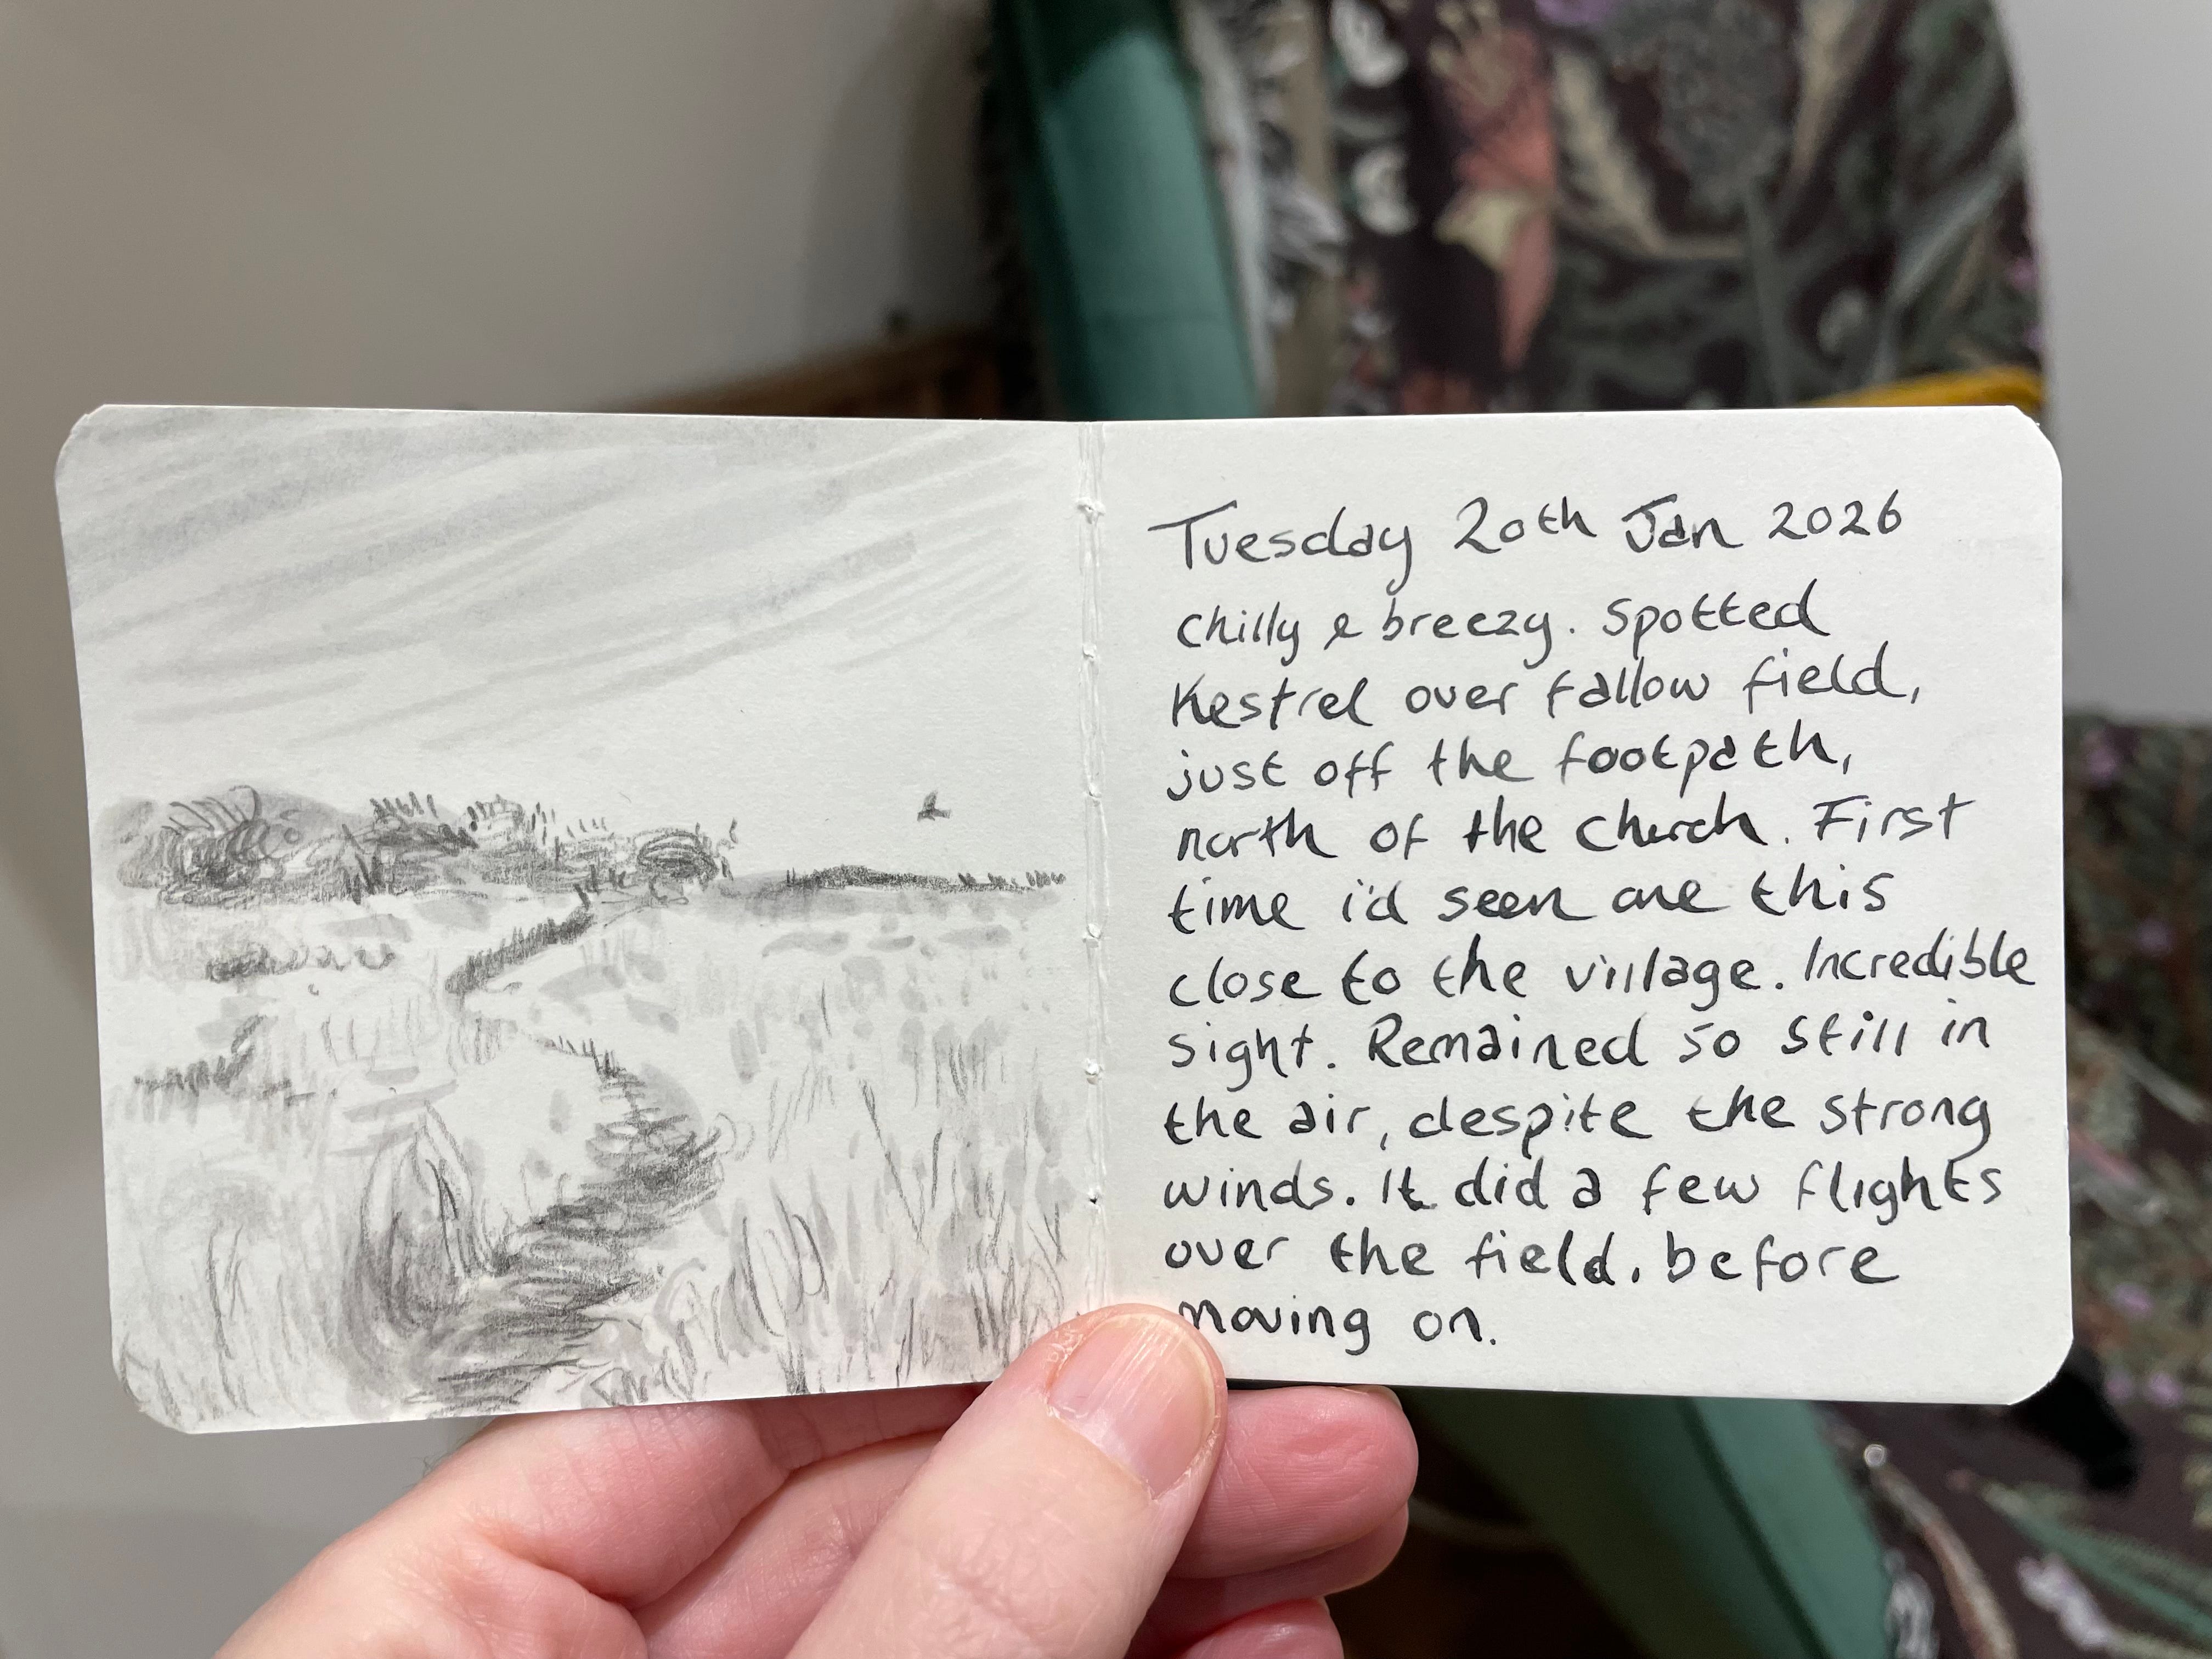 Tuesday 20th Jan 2026
Chilly & breezy. Spotted
Kestrel over fallow field,
just off the footpath,
north of the church. First
time i'd seen one this
close to the village. Incredible
sight. Remained so still in
the air, despite the strong
winds. It did a few flights
over the field, before
moving on.